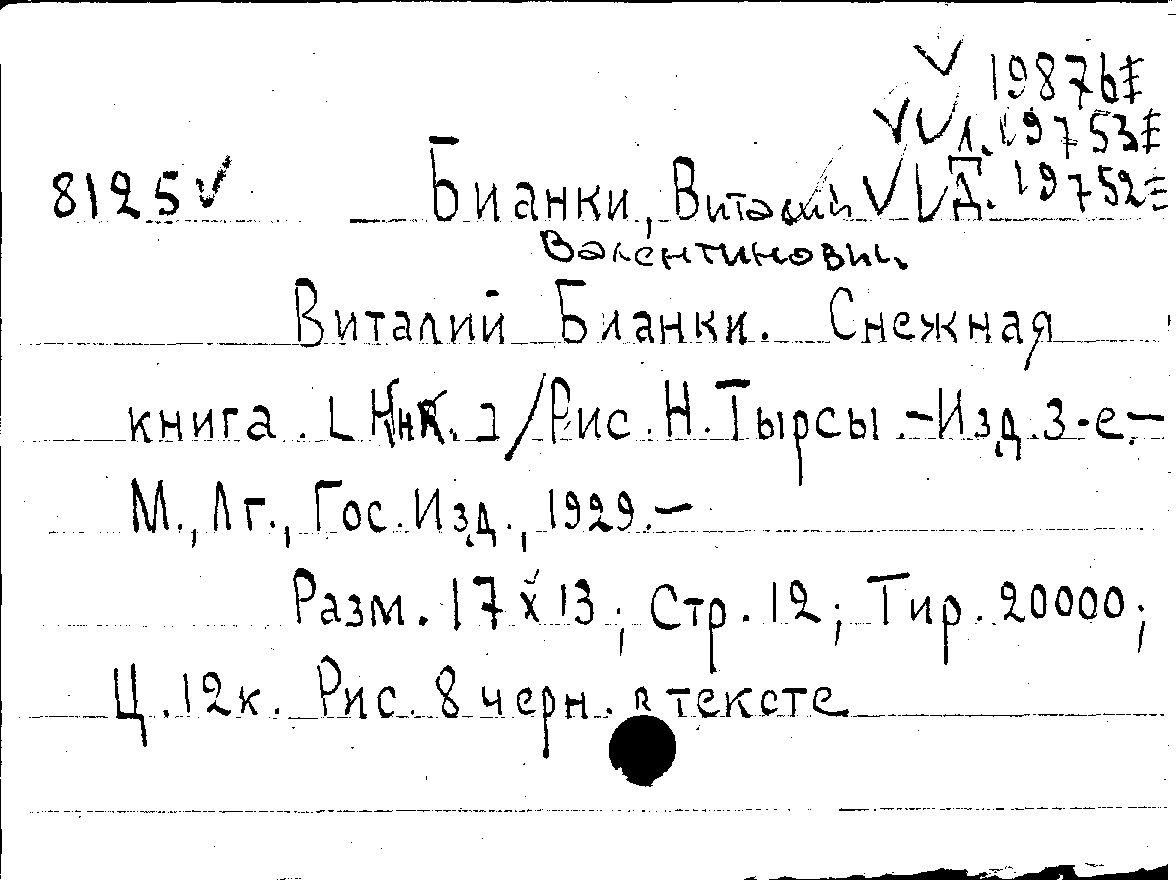 19876
л. 19753
8125 Бианки, Виталий Д. 19752
Валентинович
Виталий Бианки. Снежная
книга. [КнК.]/Рис. Н. Тырсы.-Изд. 3-е.-
М., Лг., Гос. Изд., 1929.-
Разм. 17 х 13; Стр. 12; Тир. 20000;
Ц. 12 к. Рис. 8 черн. в тексте